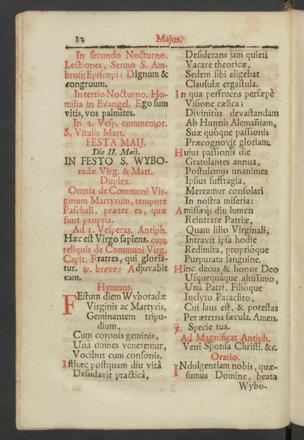 12 Majus.
In secundo Nocturno.
Lectiones, Sermo S. Am-
brosij Episcopi: Dignum &
congruum.
In tertio Nocturno. Ho-
milia in Evangel. Ego sum
vitis, vos palmites.
In 2. Vesp. commemor.
S. Vitalis Mart.
FESTA MAIJ.
Die II. Maij.
IN FESTO S. WYBO-
radæ Virg. & Mart.
Duplex.
Omnia de Communi Vir-
ginum Martyrum, tempore
Paschali, præter ea, quæ
sunt propria.
Ad 1. Vesperas. Antiph.
Hæc est Virgo sapiens. cum
reliquis de Communi Virg.
Capit. Fratres, qui gloria-
tur. & breve: Adjuvabit
eam.
Hymnus.
Festum diem Wyboradæ
Virginis ac Martyris,
Geminantem tripu-
dium,
Cum coronis geminis,
Una omnes veneremur,
Vocibus cum consonis.
Isthæc postquam diu vitâ
Desudavit practicâ,
Desiderans jam quieti
Vacare theoricæ,
Sedem sibi eligebat
Clausulæ ergastula.
In qua perfruens persæpè
Visione cælica:
Divinitus devastandam
Ab Hunnis Alemaniam,
Suæ quoque passionis
Præcognovit gloriam.
Hujus passionis die
Gratulantes annua,
Postulemus unanimes
Ipsius suffragia,
Mereamur consolari
In nostra miseria:
Amissæq; diu lumen
Reintrare Patriæ,
Quam lilio Virginali,
Intravit ipsa hodie
Redimita, proprióque
Purpurata sanguine.
Hinc decus & honor Deo
Usquequaque altissimo,
Una Patri, Filióque
Inclyto Paraclito,
Cui laus est, & potestas
Per æterna sæcula. Amen.
℣. Specie tua.
Ad Magnificat Antiph.
Veni Sponsa Christi. &c.
Oratio.
Indulgentiam nobis, quæ-
sumus Domine, beata
Wybo-